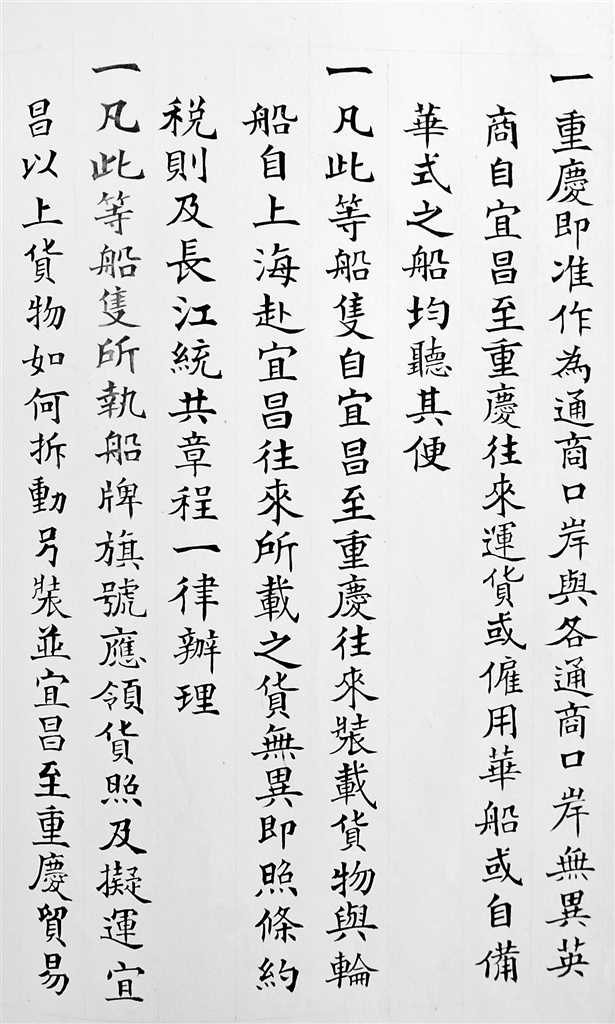 一重慶即准作為通商口岸與各通商口岸無異英
商自宜昌至重慶往來運貨或僱用華船或自備
華式之船均聽其便
一凡此等船隻自宜昌至重慶往來裝載貨物與輪
船自上海赴宜昌往來所載之貨無異即照條約
稅則及長江統共章程一律辦理
一凡此等船隻所執船牌旗號應領貨照及擬運宜
昌以上貨物如何拆動另裝並宜昌至重慶貿易